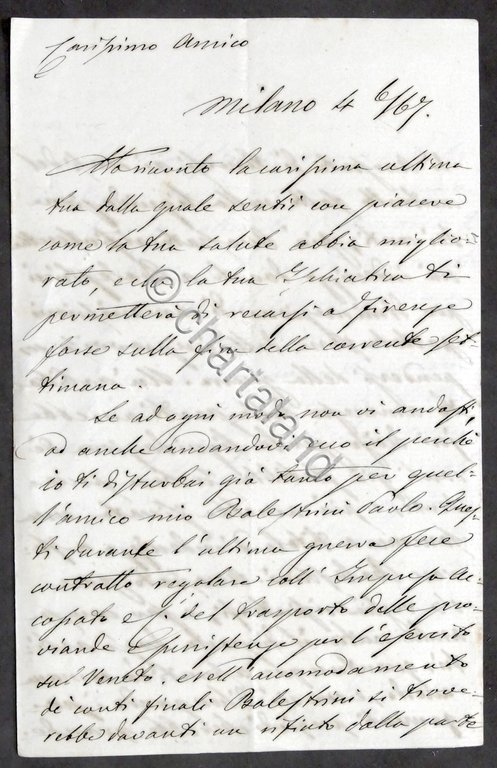 Carissimo Amico
Milano 4 6/67.
Ho ricevuto la carissima ultima
tua dalla quale sentii con piacere
come la tua salute abbia miglio-
rato, e che la tua Ischiatica ti
permetterà di recarsi a Firenze
forse sulla fine della corrente set-
timana.
Se ad ogni modo non vi andasti,
od anche andandovi ecco il perchè
io ti disturbai già tanto per quel-
l'amico mio Balestrini Paolo. Ques-
ti durante l'ultima guerra fece
contratto regolare coll' Impresa Ac-
cossato e C. del trasporto delle pro-
viande Sussistenze per l'esercito
sul Veneto. Nell' accomodamento
di conti finali Balestrini si trove-
rebbe davanti un rifiuto dalla parte
© chartaland